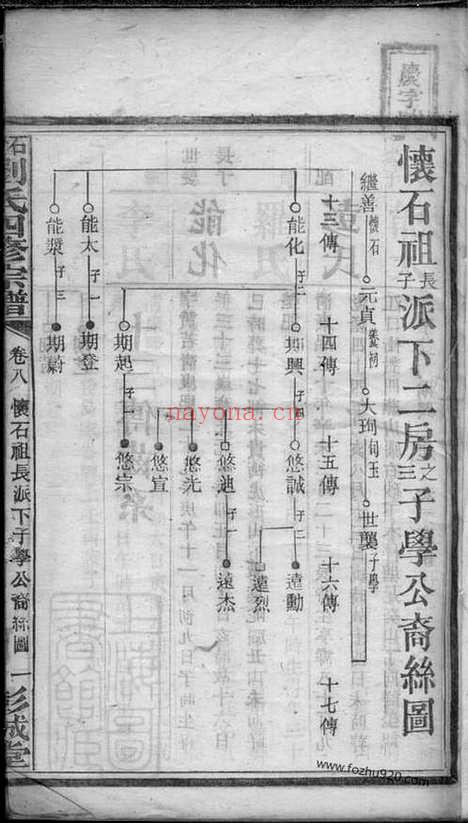 懷石祖長子派下二房之三子學公裔絲圖
繼善懷石 元貞 大珣 世襲子學
十三傳 十四傳 十五傳 十六傳 十七傳
能化子二 期興子四 悠誠子二 遠勳
遠烈
悠迪子一 遠杰
悠光
悠宣
期起子一 悠宗
能太子一 期登
能漿子三 期蔚
石 劉氏四修宗譜 卷八 懷石祖長派下子學公裔絲圖 一 彭城堂
懷字
nayona.cn
www.fozhu920.com